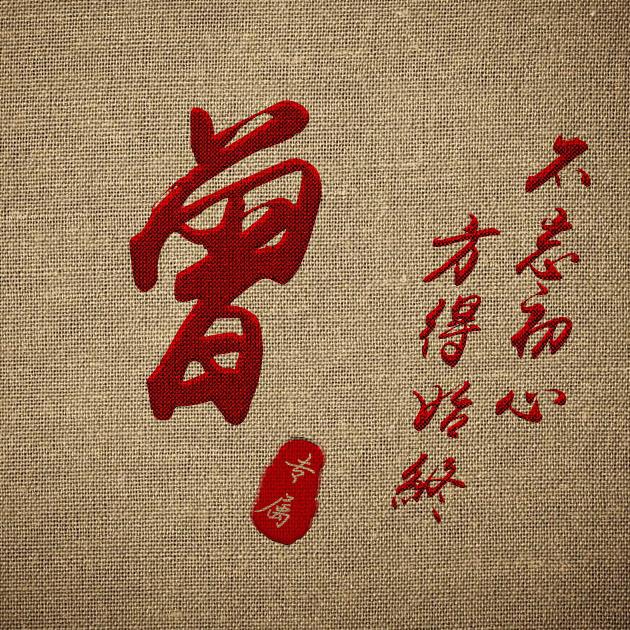 曾
不忘初心
方得始終
专属